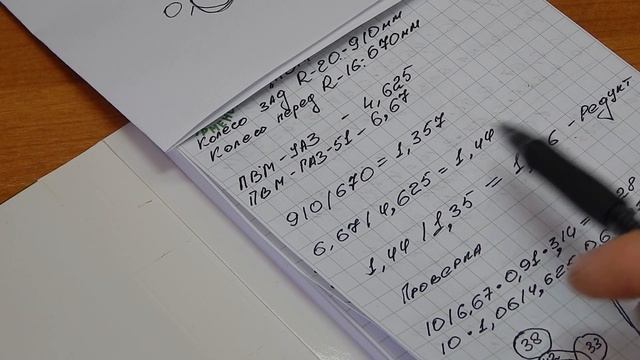 Колесо зад R-20-910мм
Колесо перед R-16:670мм
ПВМ-УАЗ - 4,625
ПВМ-ГАЗ-51- 6,67
910/670=1,357
6.67/4,625=1,44
1,44/1,35 = 1, 6 - Редукт
Проверка
10/6,67·0,91·3,14=
10·1,06/4,62
38
33